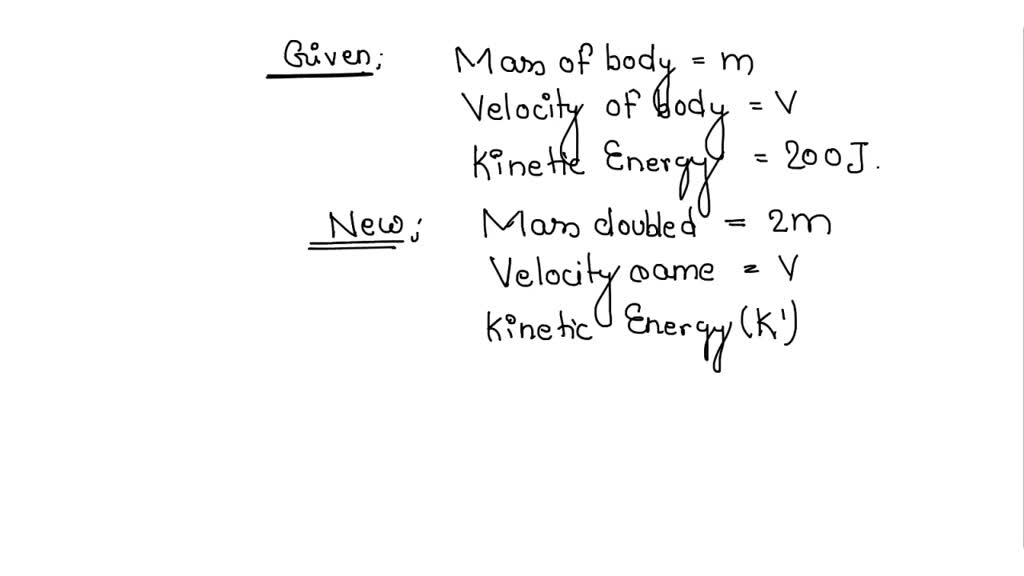 Given; Mass of body = m
Velocity of body = V
Kinetic Energy = 200J.
New; Mass doubled = 2m
Velocity same = V
Kinetic Energy (K')